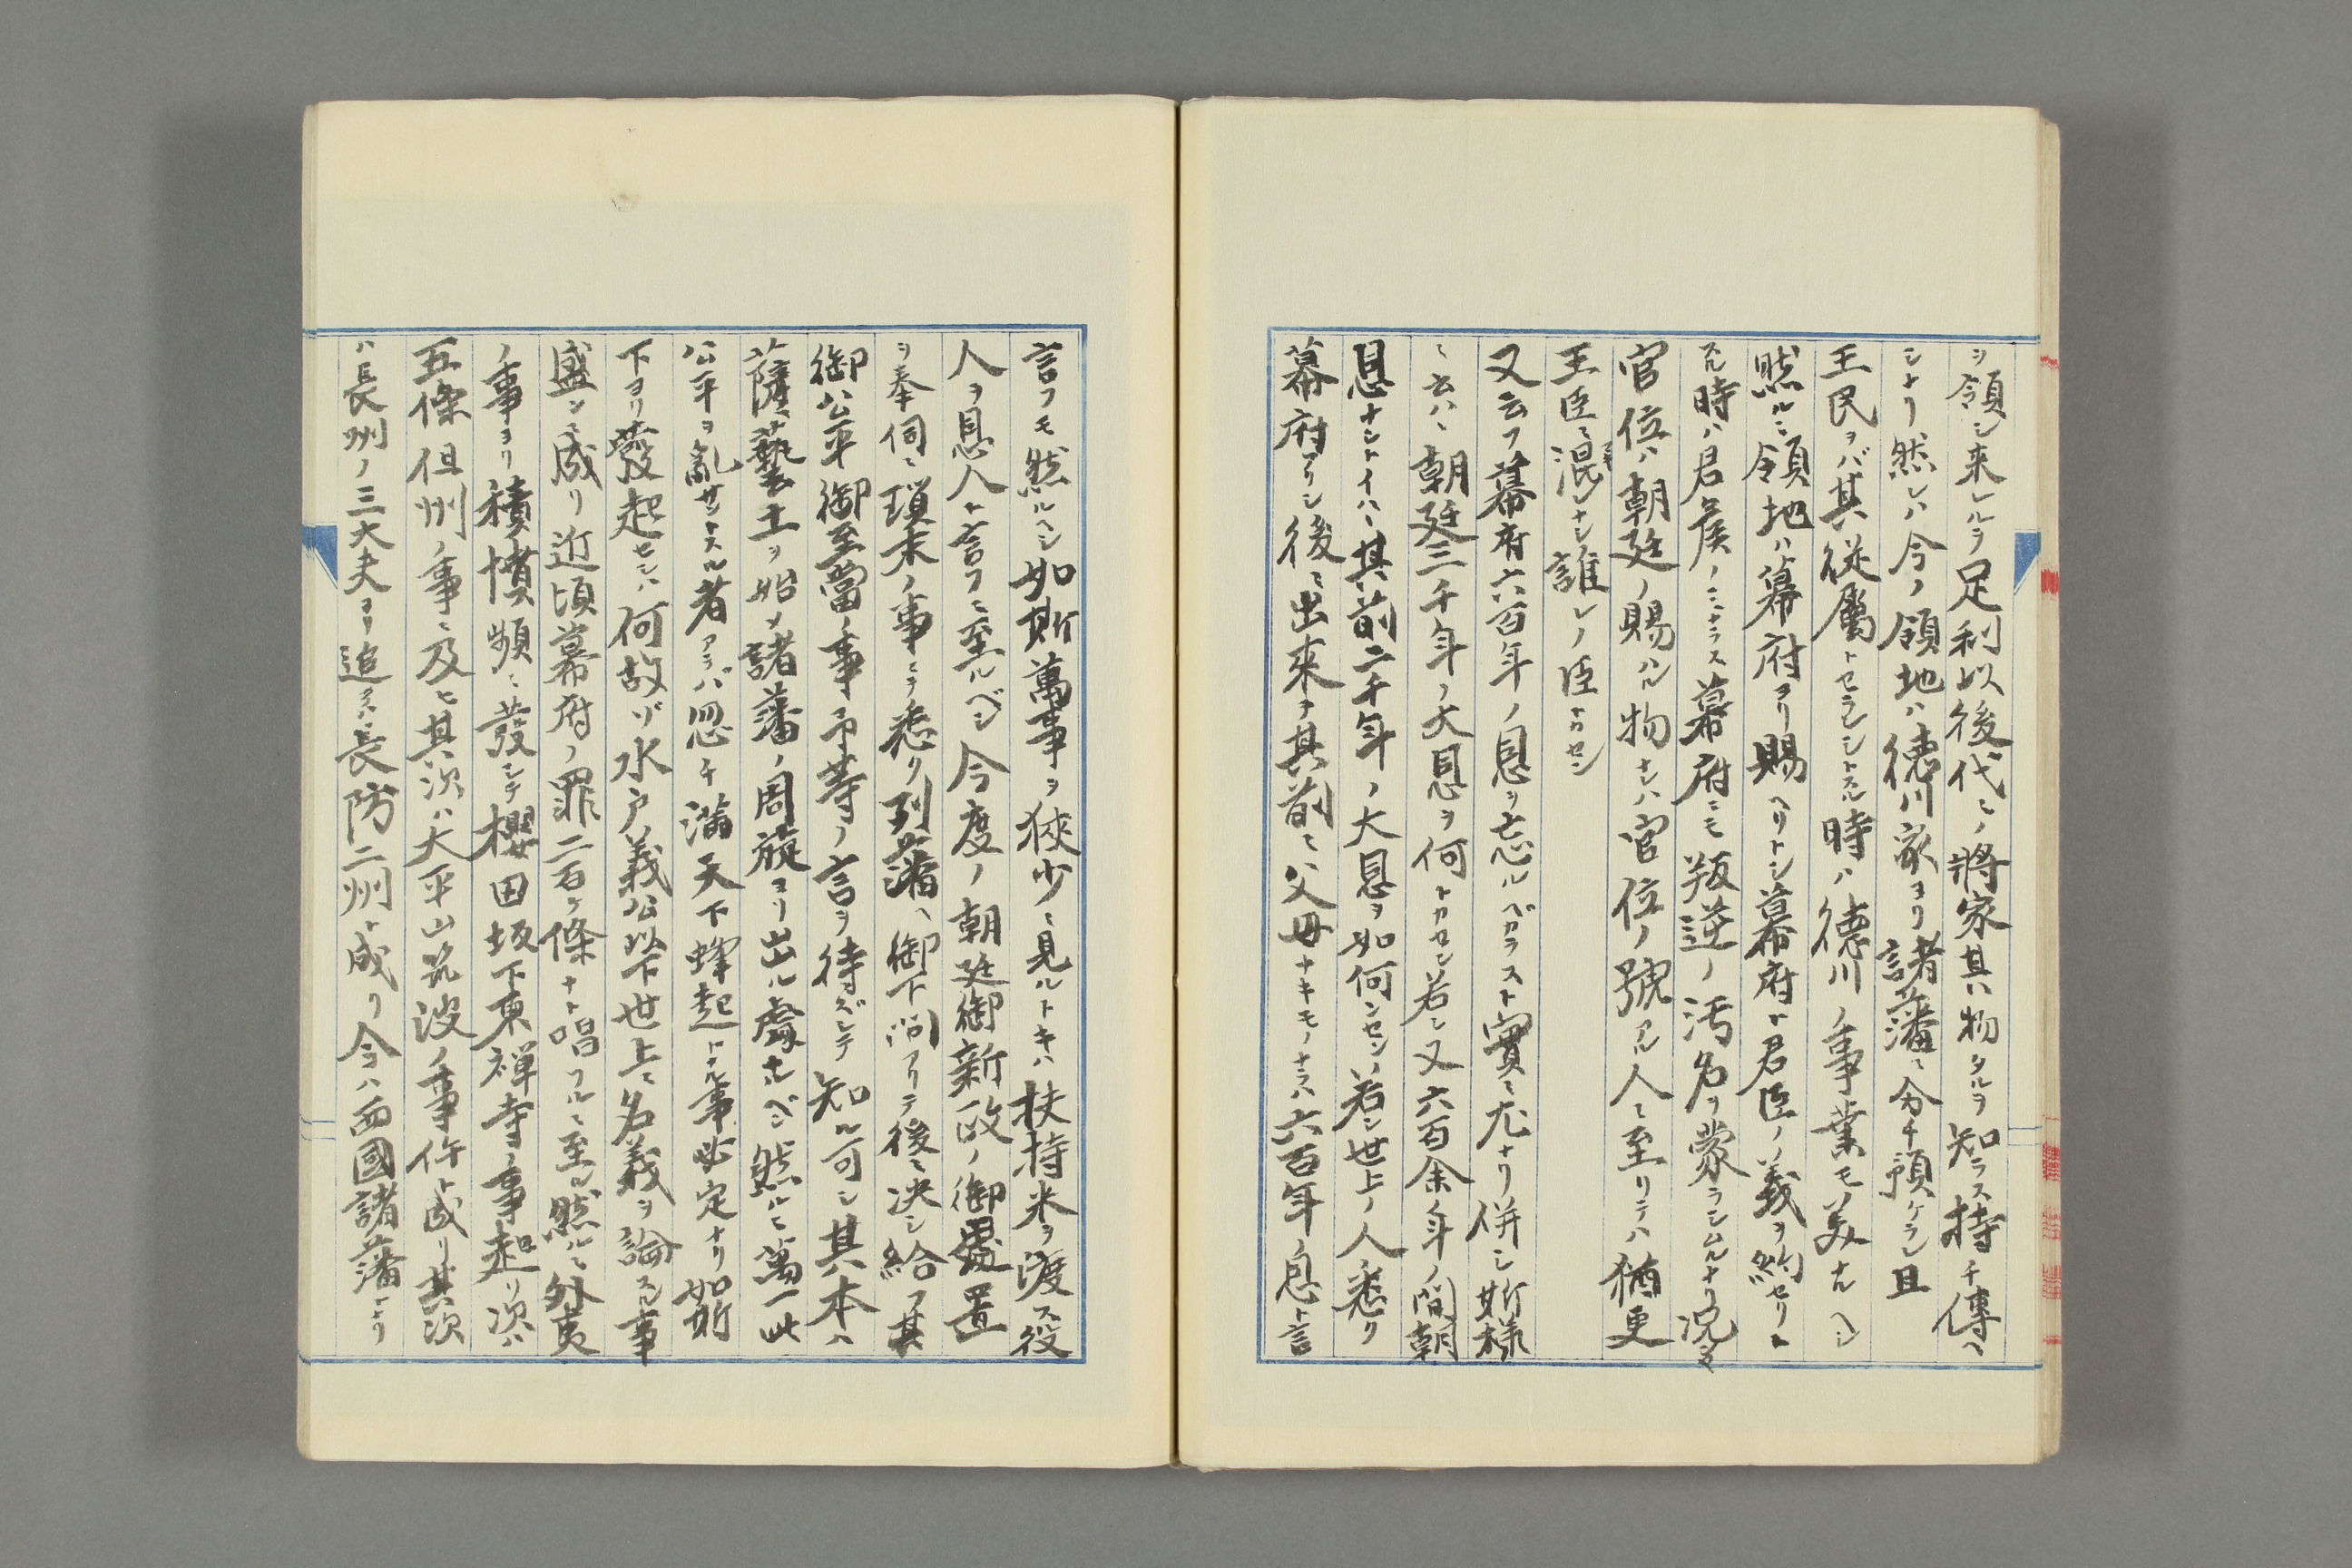 ヲ領シ来レルヲ足利以後代々ノ將家其物タルヲ知ラス持チ傳ヘ
シナリ然レハ今ノ領地ハ徳川家ヨリ諸藩ニ分チ預ケラレ且
王民ヲバ其従屬トセラレシトスル時ハ徳川ノ事業モ美ナルヘシ
然ルニ領地ハ幕府ヨリ賜ヘリトシ幕府ト君臣ノ義ヲ約セリト
スル時ハ君侯ノミナラス幕府ニモ叛逆ノ汚名ヲ蒙ラシムルナリ況ヤ
官位ハ朝廷ノ賜ハル物ナレハ官位ノ號アル人ニ至リテハ猶更
王臣ニ混レナシ誰レノ臣トカセン
又云フ幕府六百年ノ息ヲ忘ルベカラスト實ニ尤ナリ併シ斯様
ニ云ハヽ朝廷三千年ノ大息ヲ何トカセン若シ又六百余年ノ間朝
息ナシトイハヽ其前二千年ノ大息ヲ如何ンセン若シ世上ノ人悉ク
幕府アリシ後ニ出来ヲ其前ニ父母ナキモノナラハ六百年ノ息ト言
言フモ然ルヘシ如斯萬事ヲ狹少ニ見ルトキハ扶持米ヲ渡ス役
人ヲ息人ト言フニ至ルベシ今度ノ朝廷御新政ノ御處置
ヲ奉伺ニ瑣末ノ事ニテ悉ク列藩ヘ御下問アリテ後ニ決シ給フ其
御公平御至當ノ事予等ノ言ヲ待ズシテ知ル可シ其本ハ
薩藝土ヲ始メ諸藩ノ周旋ヨリ出ル處ナルベシ然ルニ萬一此
公平ヲ亂サントスル者アラバ忽チ滿天下蜂起トナル事必定ナリ如斯
下ヨリ發起セシハ何故ゾ水戸義公以下世上ニ名義ヲ論スル事
盛ンニ成リ近頃幕府ノ罪二百ケ條ナト唱フルニ至ル然ルニ外夷
ノ事ヨリ積憤頻ニ發シテ櫻田坂下東禅寺ノ事起リ次ハ
五條但州ノ事ニ及ヒ其次ハ大平山筑波ノ事件ト成リ其次
ハ長州ノ三大夫ヨリ追ヲハ長防二州ト成リ今ハ西國諸藩トナリ